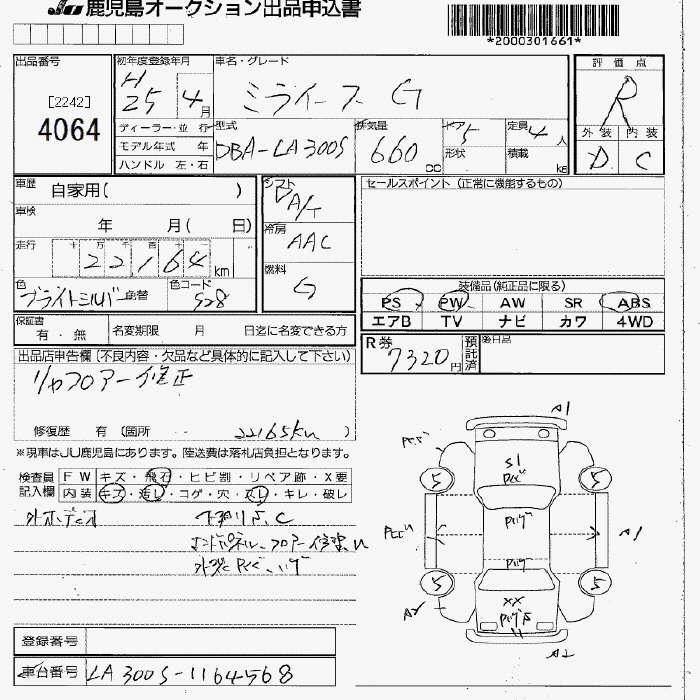 JU 鹿児島オークション出品申込書
*2000301661*
出品番号
[2242]
4064
初年度登録年月
H
25 4月
車名・グレード
ミライース G
評価点
R
外装 内装
D C
ディーラー・並 行
モデル年式 年
ハンドル 左・右
型式
DBA-LA300S
排気量
660 cc
ドア 5
形状
定員 4人
積載 kg
車歴 自家用( )
車検
年 月( 日)
走行
十 万 千 百 十 一
22,164 km
色
ブライトシルバー 色替
色コード
S28
シフト
A/T
冷房
AAC
燃料
G
セールスポイント (正常に機能するもの)
装備品(純正品に限る)
PS PW AW SR ABS
エアB TV ナビ カワ 4WD
保証書
有・無
名変期限 月 日迄に名変できる方
R券
7320円
預託済
後日品
出品店申告欄(不良内容・欠品など具体的に記入して下さい)
リヤフロアー修正
修復歴 有 (箇所 22165km )
※現車はJU鹿児島にあります。陸送費は落札店負担となります。
検査員
記入欄
FW キズ・飛石・ヒビ割・リペア跡・X要
内装 キズ・汚レ・コゲ・穴・スレ・キレ・破レ
下廻りS,C
エンドパネル、フロアー修理、
A1
S1
5
5
A1
5
5
XX
A2
A2
登録番号
車台番号 LA300S-1164568